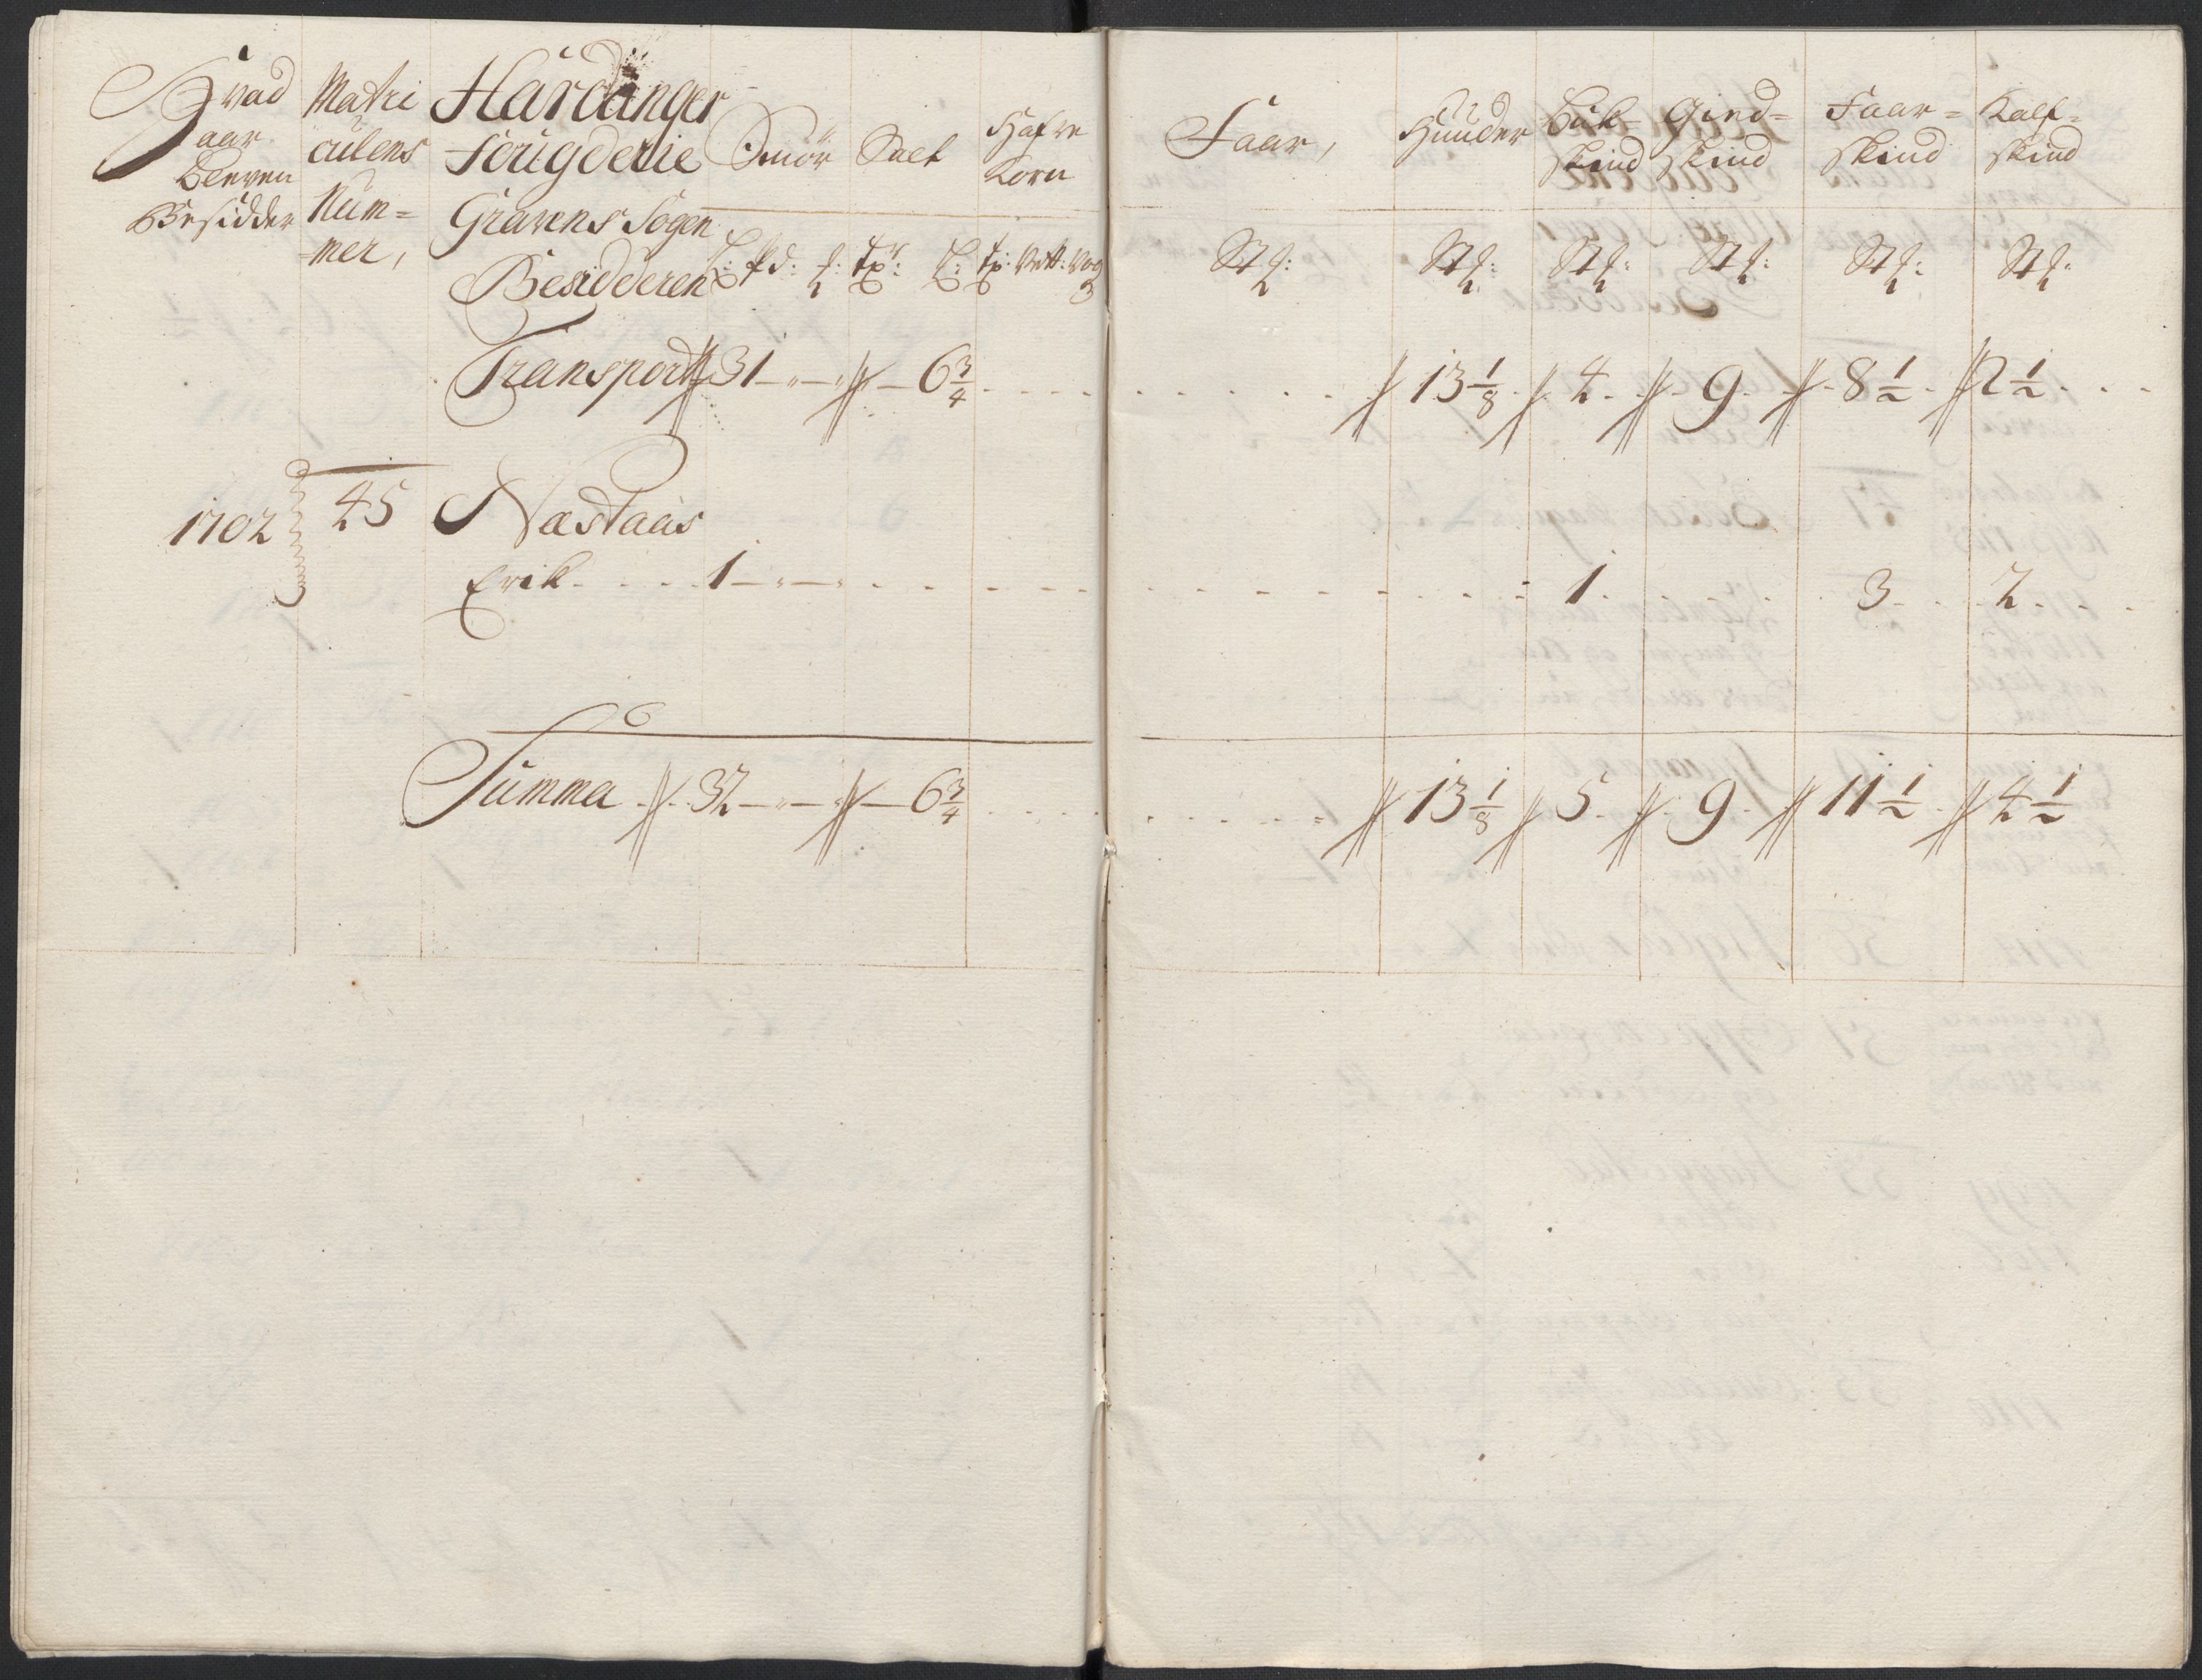 Hvad
aar
bleven
Besidder
Matri
culens
Num=
=mer,
Hardanger
Fougderie
Gravens Sogen
Besidderen
Smör
Salt
Hafre
Korn
Faar,
Huuder
Buk=
skind
Gied=
skind
Faar=
skind
Kalf=
skind
Transport 31 - " - " - 6 3/4 13 1/8 4 9 8 1/2 2 1/2
1702 45 Næstaas
Erik 1 - " - " 1 3 2
Summa 32 - " - " - 6 3/4 13 1/8 5 9 11 1/2 4 1/2